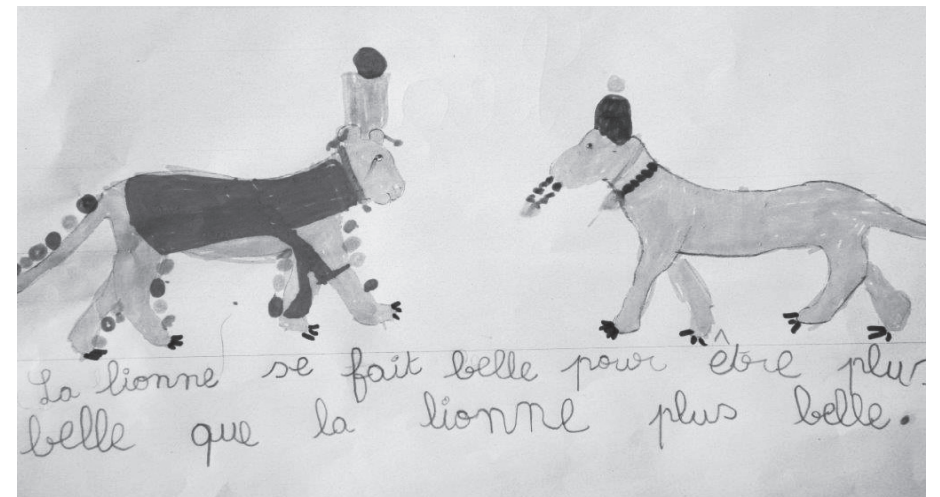 La lionne se fait belle pour être plus
belle que la lionne plus belle.